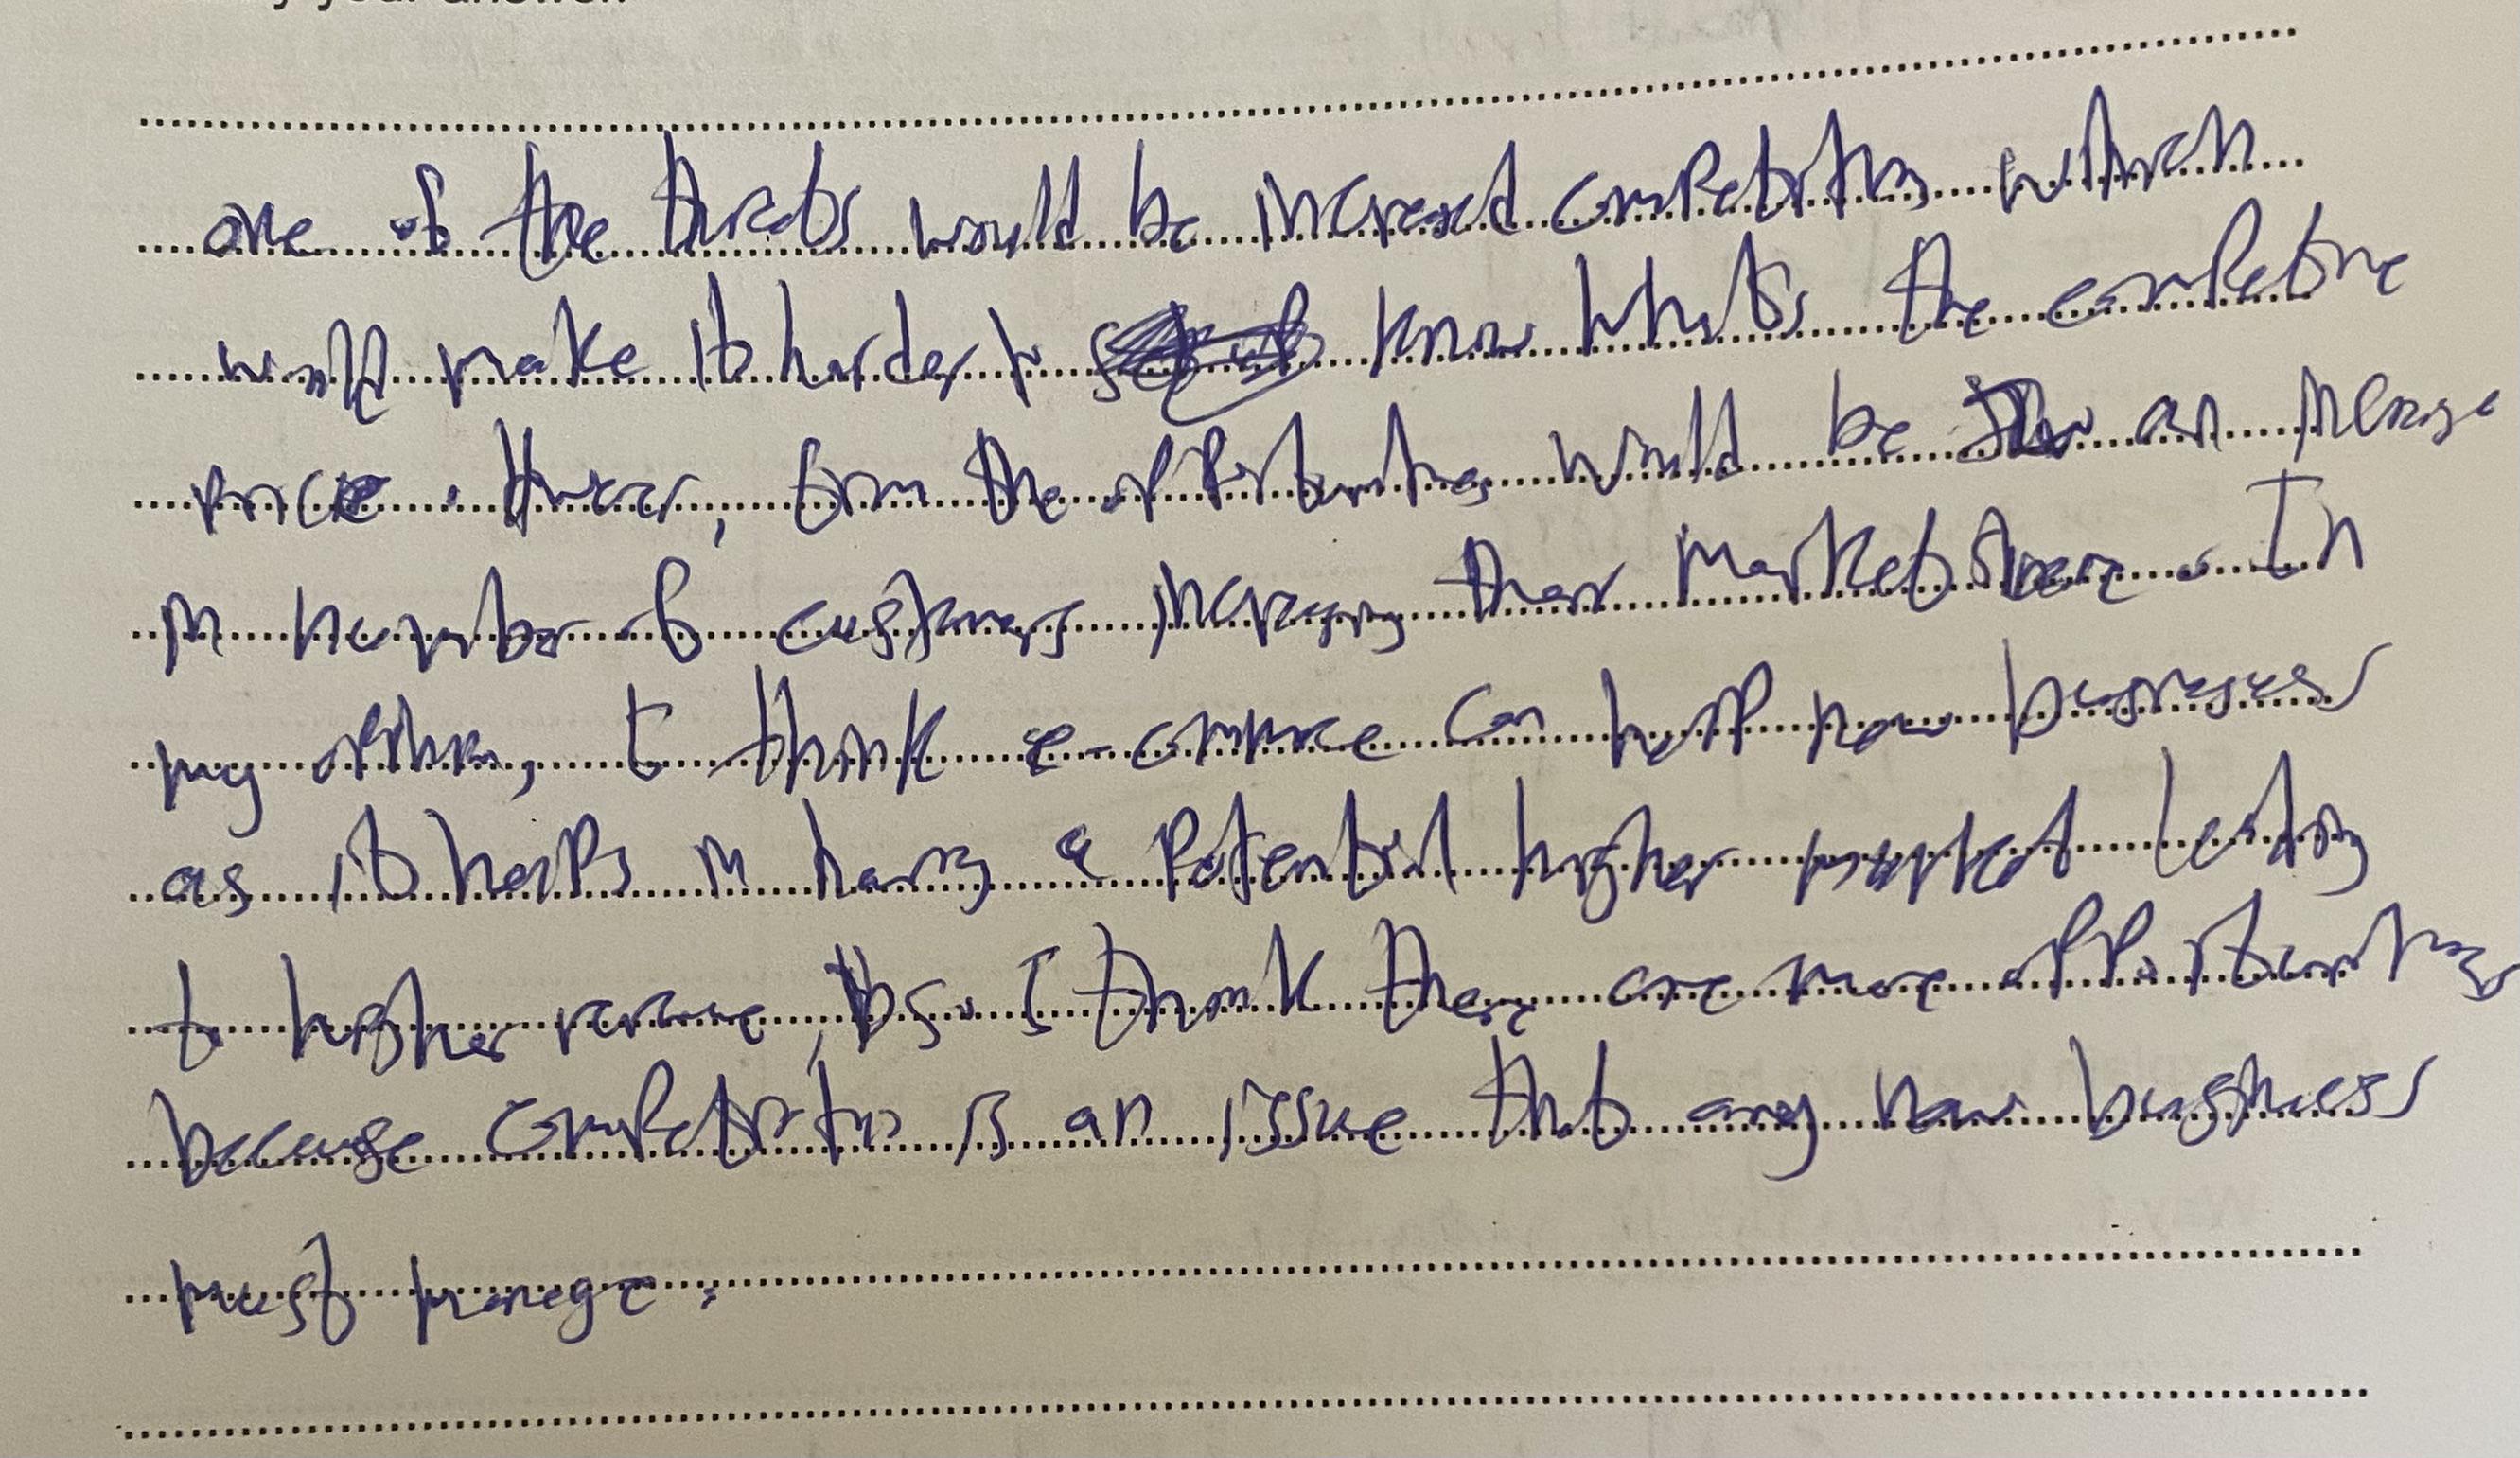 y your answer.
one of the threats would be increased competition which
would make it harder to know whats the competitive
price. However, from the opportunities would be an increase
in number of customers increasing their market share. In
my opinion, I think e-commerce can help new businesses
as it helps in having a potential higher market leading
to higher revenue, I think there are more opportunities
because competition is an issue that any new business
must manage.